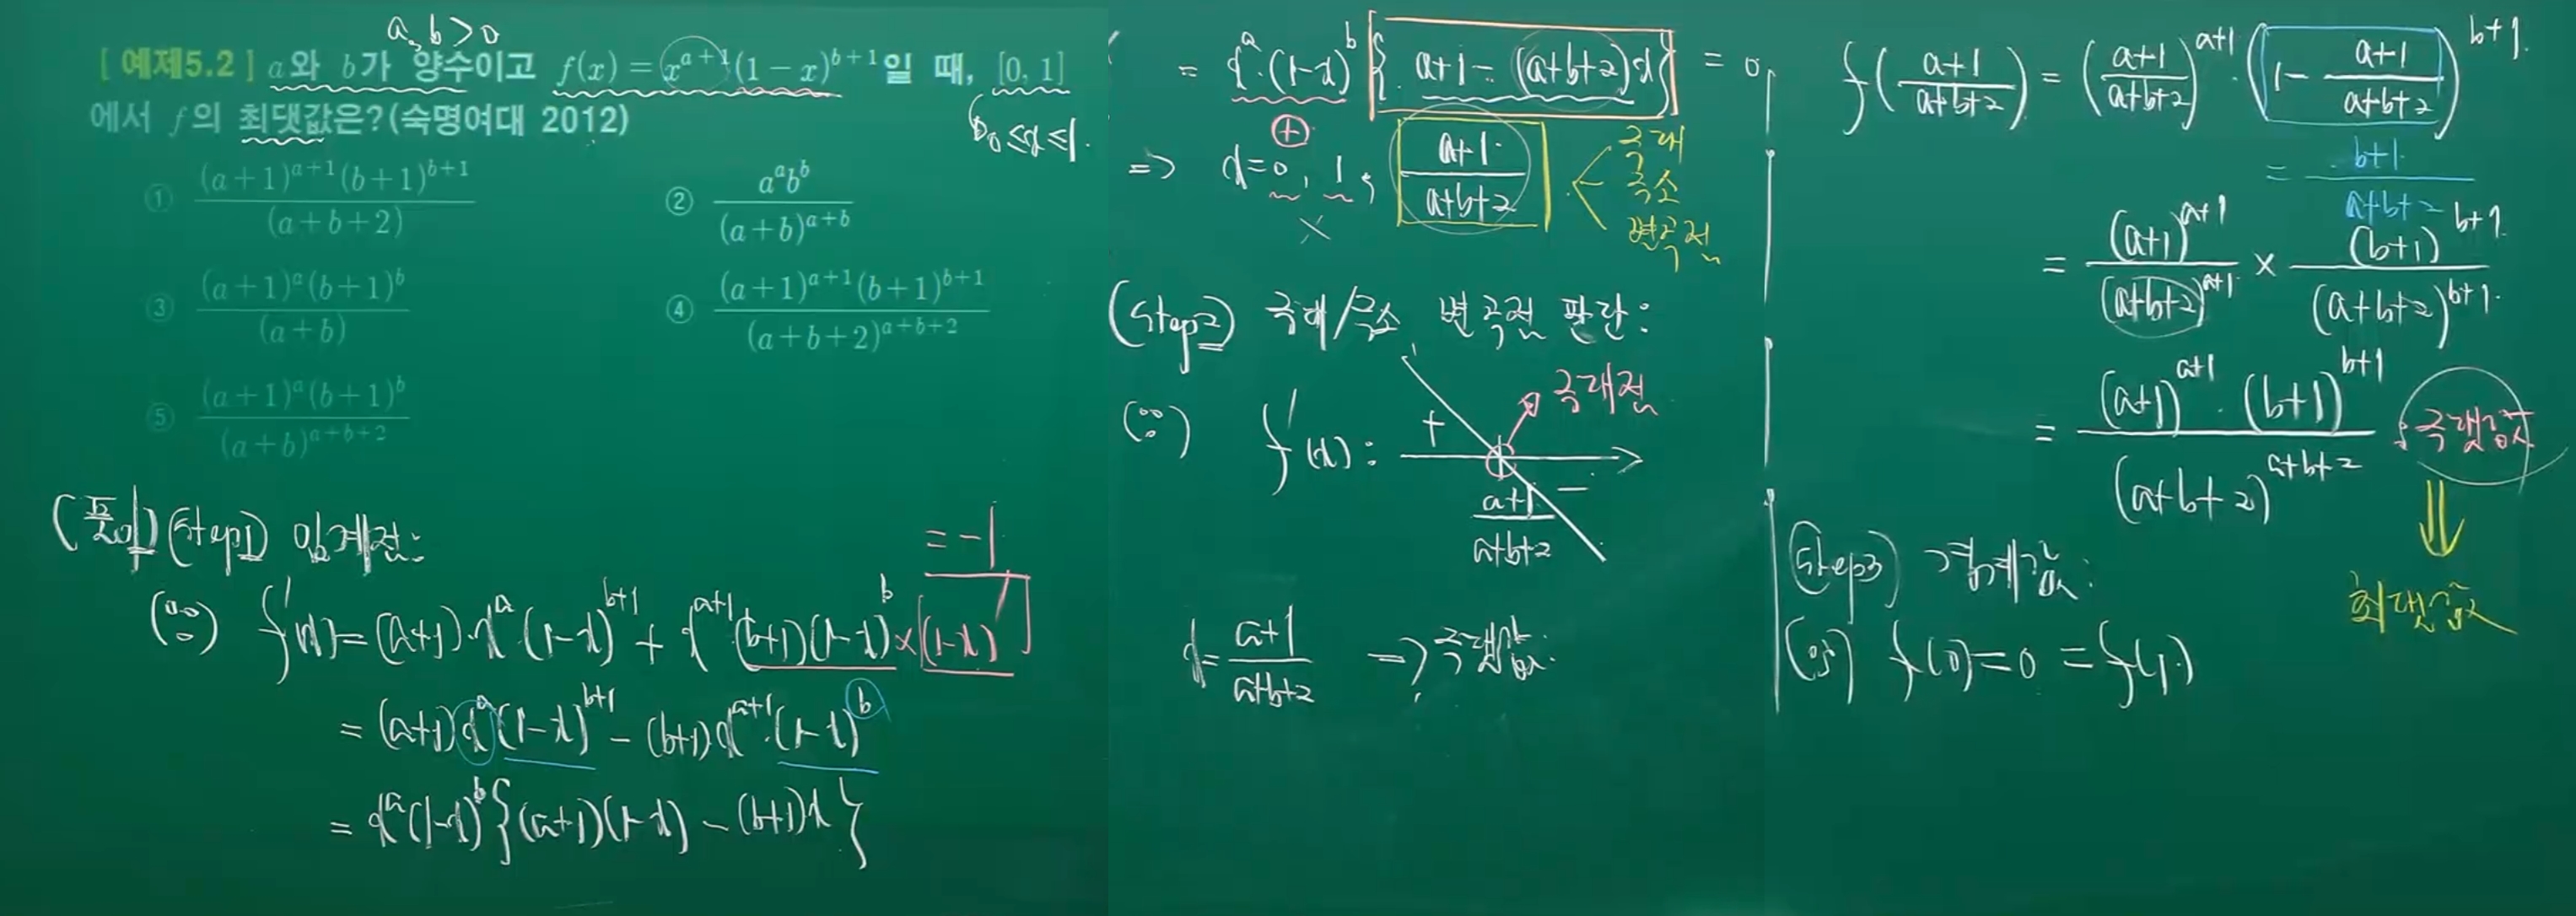 a, b > 0
[예제5.2] a와 b가 양수이고 f(x) = x^{a+1}(1-x)^{b+1}일 때, [0, 1]
에서 f의 최댓값은?(숙명여대 2012)
0 ≤ x ≤ 1.
① \frac{(a+1)^{a+1}(b+1)^{b+1}}{(a+b+2)}
② \frac{a^a b^b}{(a+b)^{a+b}}
③ \frac{(a+1)^a(b+1)^b}{(a+b)}
④ \frac{(a+1)^{a+1}(b+1)^{b+1}}{(a+b+2)^{a+b+2}}
⑤ \frac{(a+1)^a(b+1)^b}{(a+b)^{a+b+2}}
(풀이) (Step1) 임계점:
= -1
(∵) f'(x) = (a+1)·x^a·(1-x)^{b+1} + x^{a+1}(b+1)(1-x)^b × (1-x)'
= (a+1)x^a(1-x)^{b+1} - (b+1)x^{a+1}·(1-x)^b
= x^a(1-x)^b{(a+1)(1-x) - (b+1)x}
= x^a·(1-x)^b{a+1 - (a+b+2)x} = 0,
⊕
=> x = 0, 1, \frac{a+1}{a+b+2}
×
극대
극소
변곡점
(Step2) 극대/극소 변곡점 판단:
(∵) f'(x): + -
극대점
\frac{a+1}{a+b+2}
x = \frac{a+1}{a+b+2} => 극댓값:
f(\frac{a+1}{a+b+2}) = (\frac{a+1}{a+b+2})^{a+1}·(1 - \frac{a+1}{a+b+2})^{b+1}.
= \frac{b+1}{a+b+2}
= \frac{(a+1)^{a+1}}{(a+b+2)^{a+1}} × \frac{(b+1)^{b+1}}{(a+b+2)^{b+1}}
= \frac{(a+1)^{a+1}·(b+1)^{b+1}}{(a+b+2)^{a+b+2}} : 극댓값
⇓
최댓값
(Step3) 경계값:
(∵) f(0) = 0 = f(1)